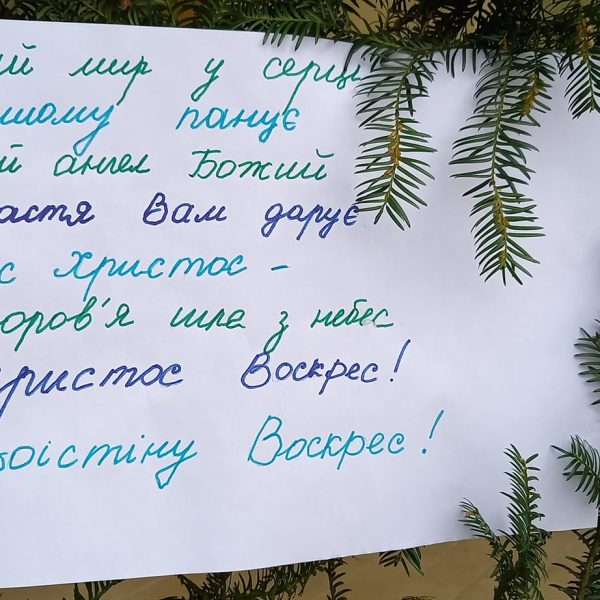 ий мир у серці
шому панує
й ангел Божий
астя Вам дарує
с Христос -
доров'я шле з небес
Христос Воскрес!
Воістіну Воскрес!